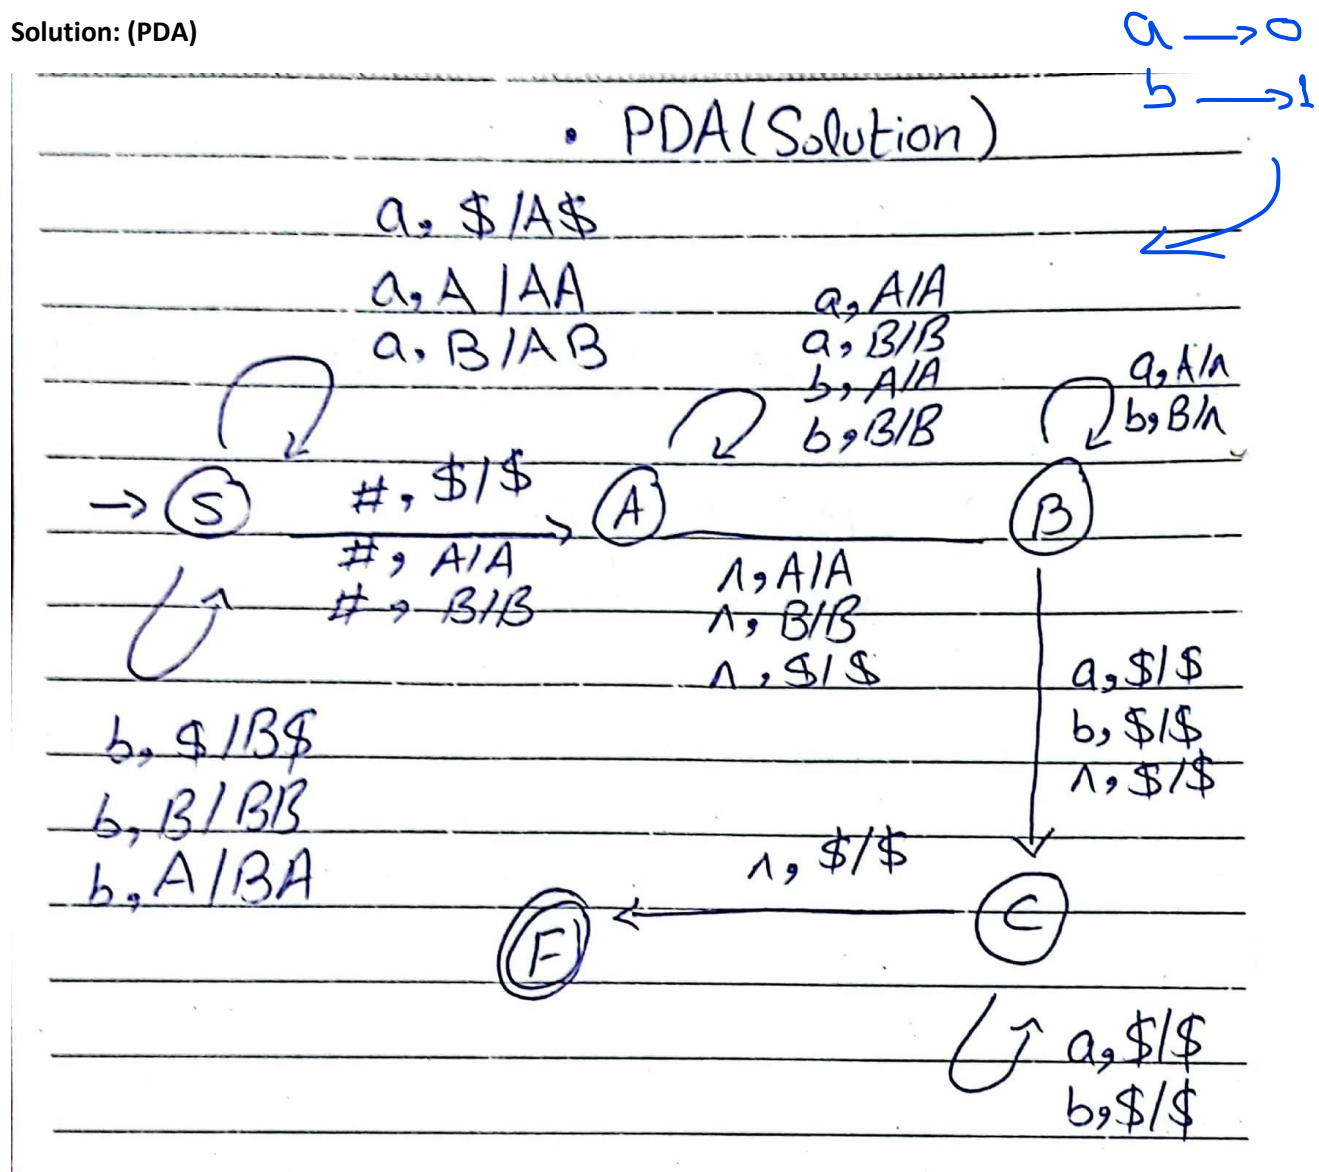 Solution: (PDA)
a → 0
b → 1
• PDA(Solution)
a, $/A$
a, A/AA
a, B/AB
a, A/A
a, B/B
b, A/A
b, B/B
a, A/Λ
b, B/Λ
→ S
#, $/$
#, A/A
#, B/B
A
Λ, A/A
Λ, B/B
Λ, $/$
B
a, $/$
b, $/$
Λ, $/$
b, $/B$
b, B/BB
b, A/BA
Λ, $/$
F
C
a, $/$
b, $/$